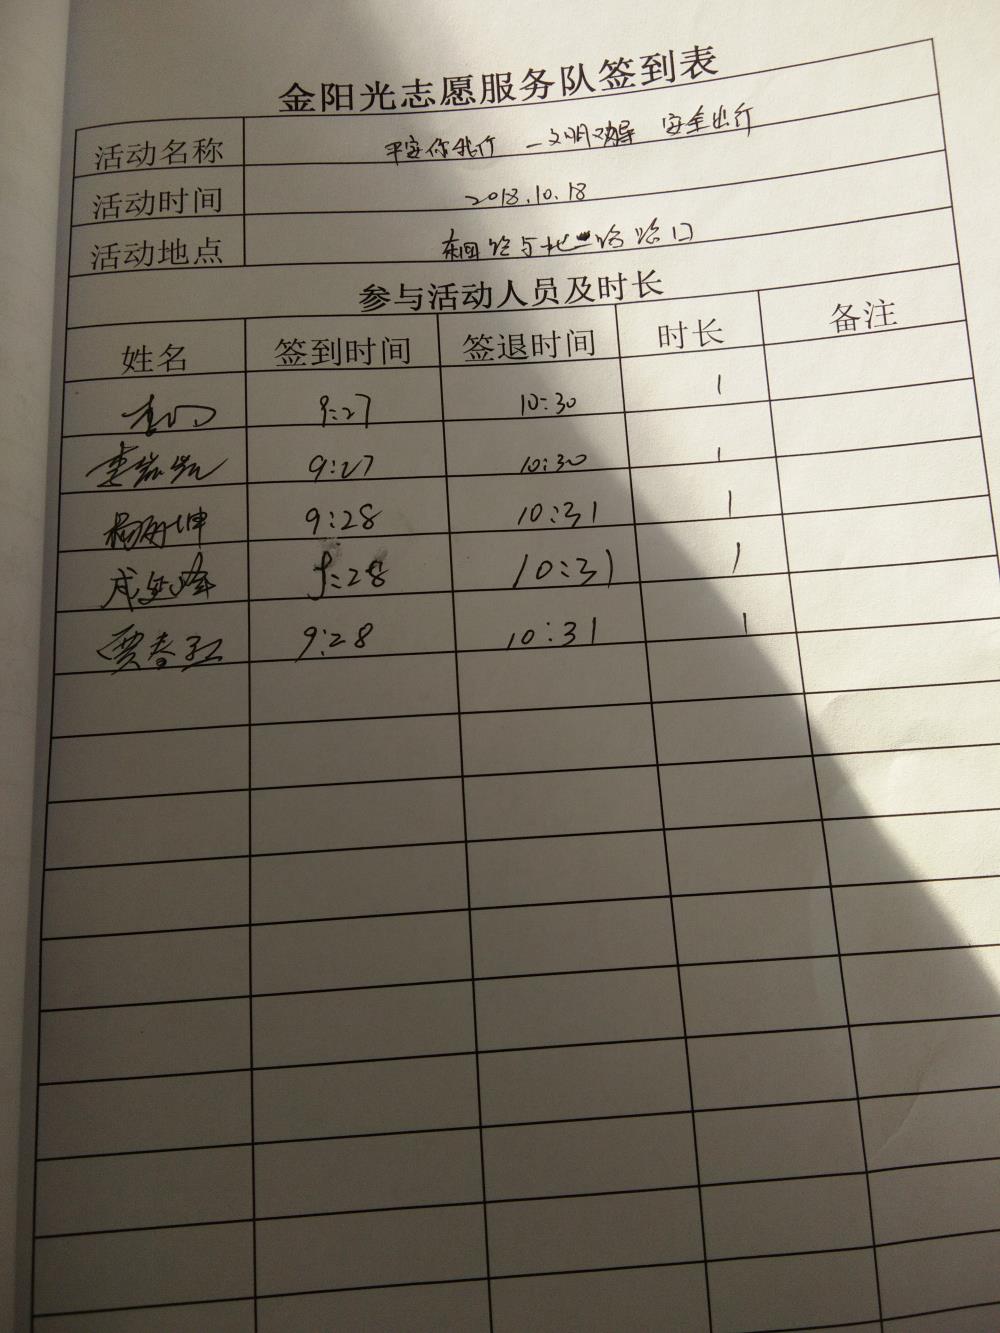 金阳光志愿服务队签到表
活动名称 平安你我行 — 文明劝导 安全出行
活动时间 2018.10.18
活动地点 路与北二路路口
参与活动人员及时长
姓名 签到时间 签退时间 时长 备注
9:27 10:30 1
9:27 10:30 1
杨丽坤 9:28 10:31 1
9:28 10:31 1
贾春红 9:28 10:31 1